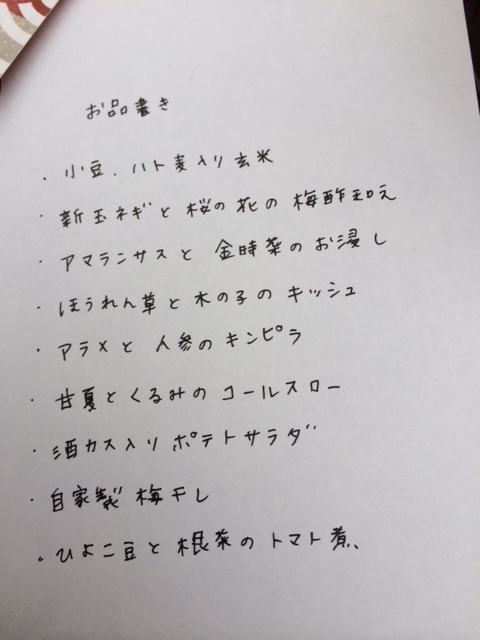 お品書き
・小豆、ハト麦入り玄米
・新玉ネギと桜の花の梅酢和え
・アマランサスと金時菜のお浸し
・ほうれん草と木の子のキッシュ
・アラメと人参のキンピラ
・甘夏とくるみのコールスロー
・酒カス入りポテトサラダ
・自家製梅干し
・ひよこ豆と根菜のトマト煮、